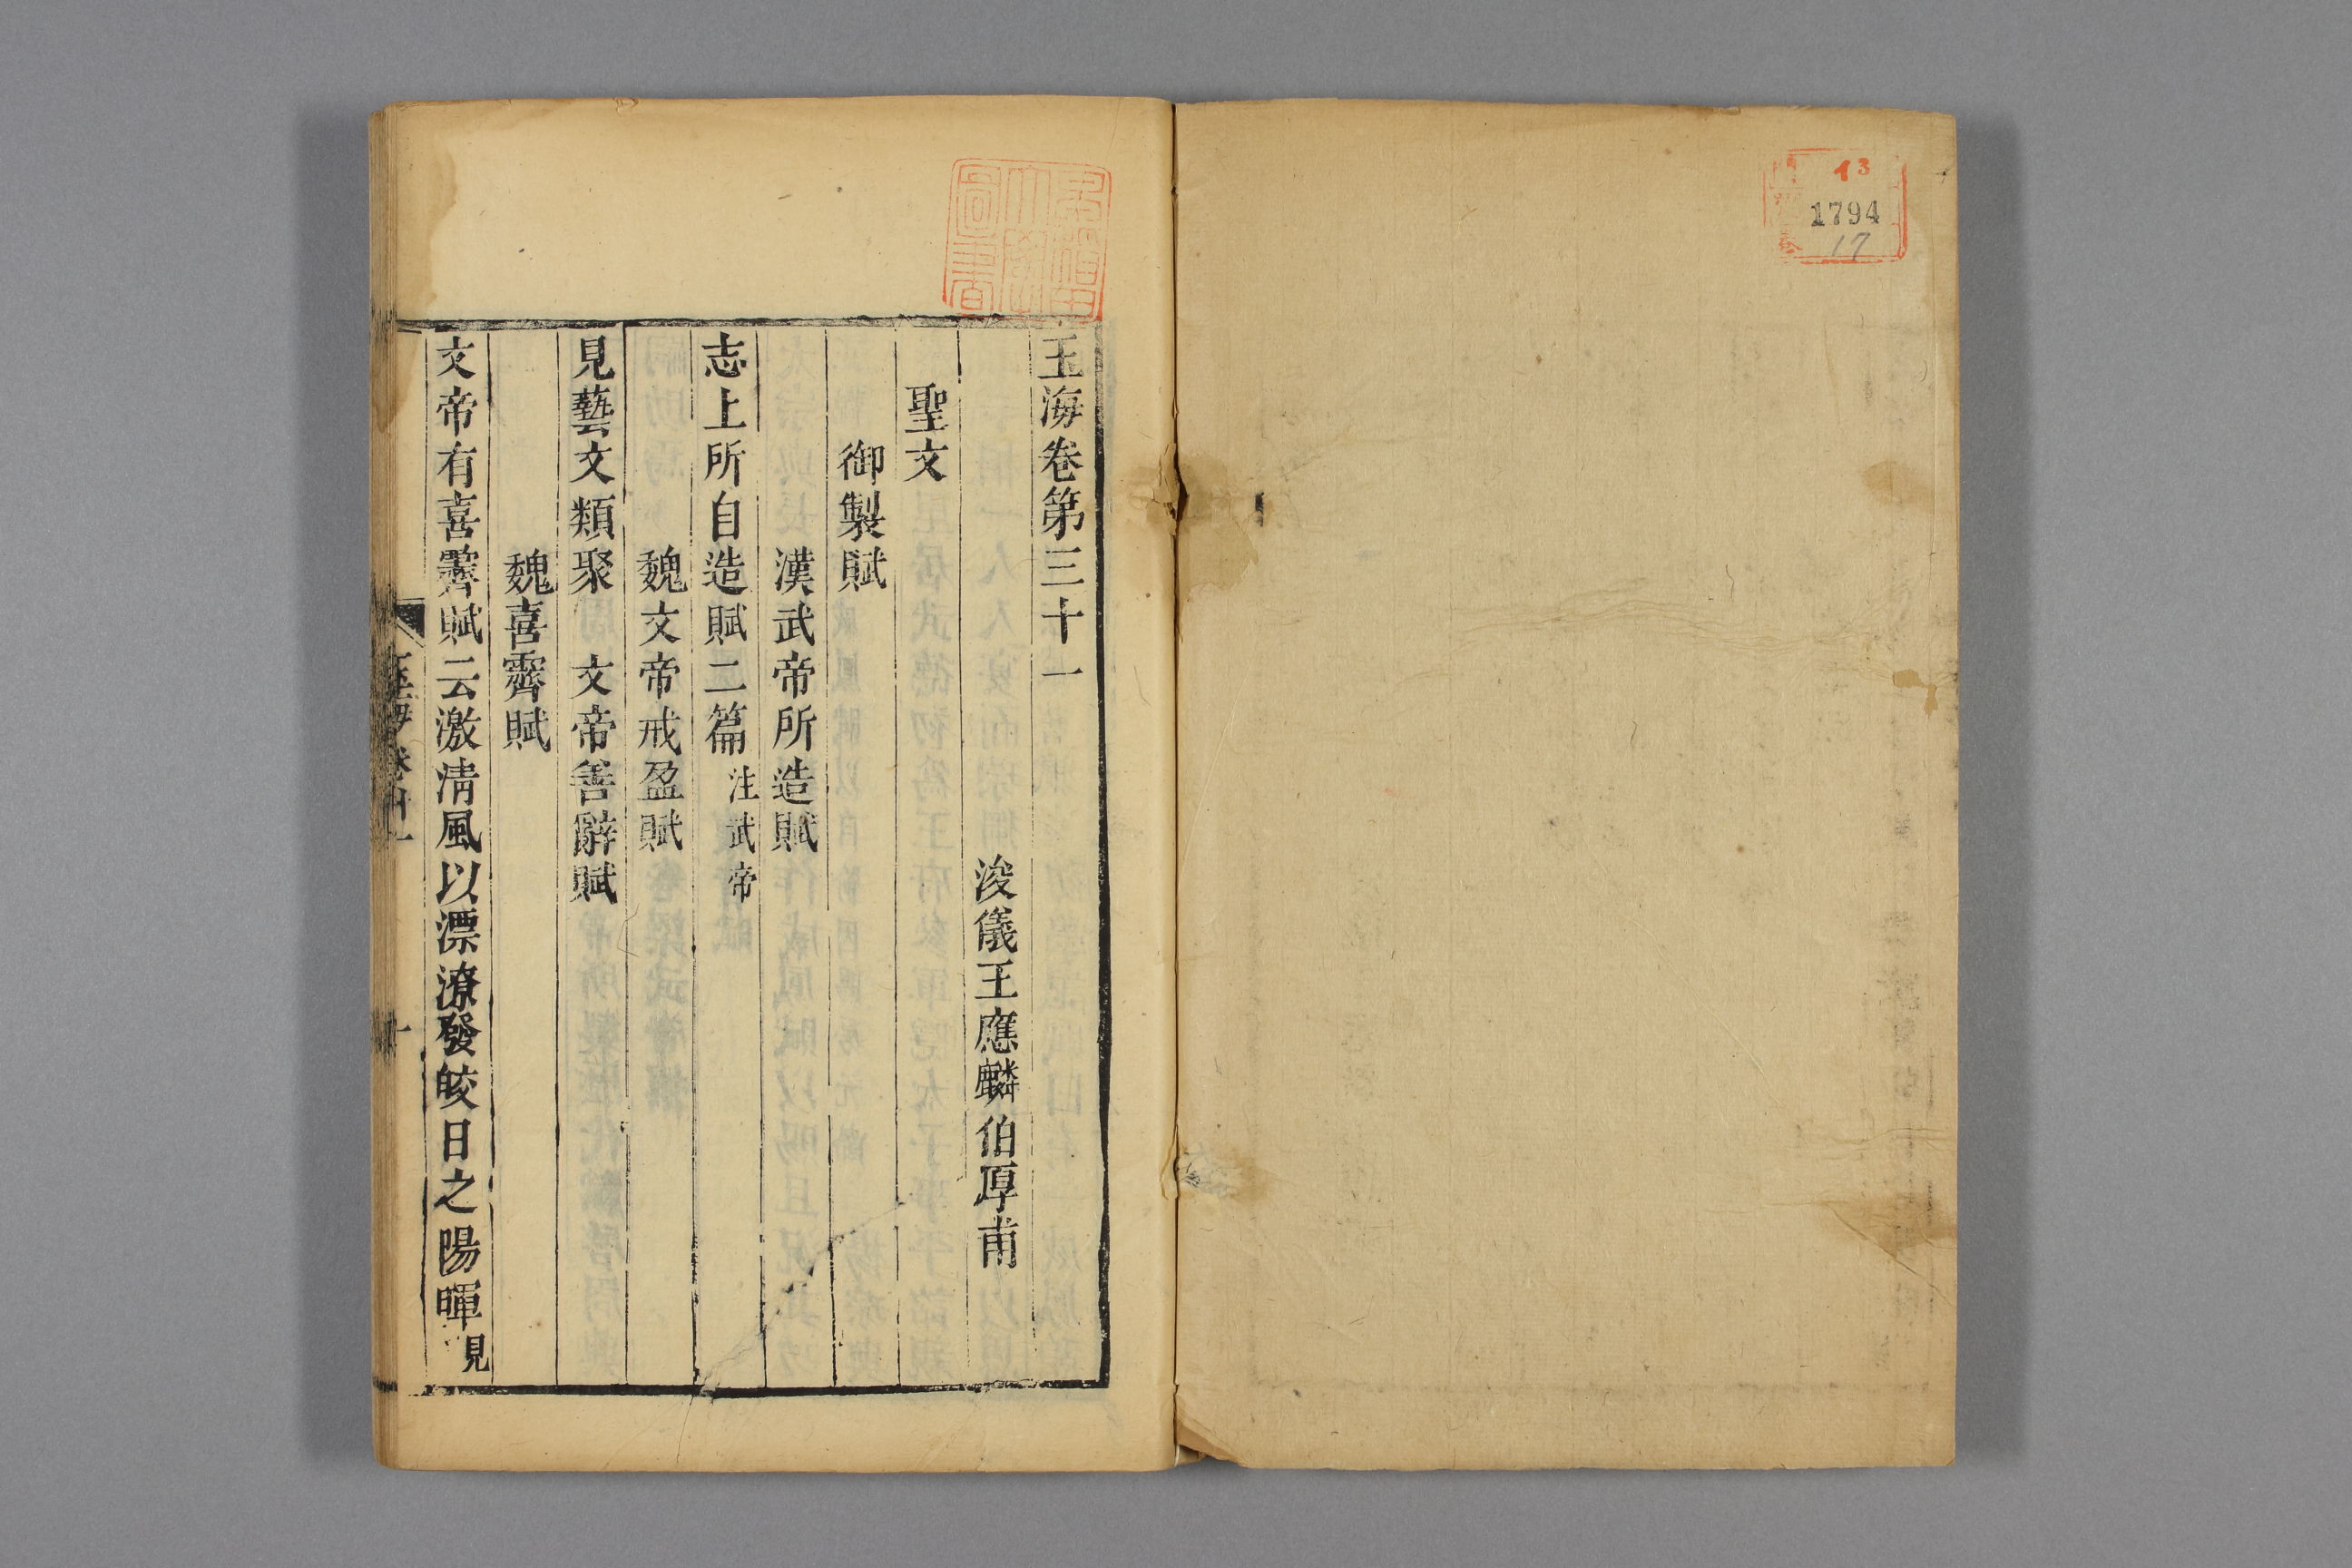 13
1794
17
玉海卷第三十一
浚儀王應麟伯厚甫
聖文
御製賦
漢武帝所造賦
志上所自造賦二篇 注武帝
魏文帝戒盈賦
見藝文類聚 文帝善辭賦
魏喜霽賦
文帝有喜霽賦云激清風以漂潦發皎日之陽暉見